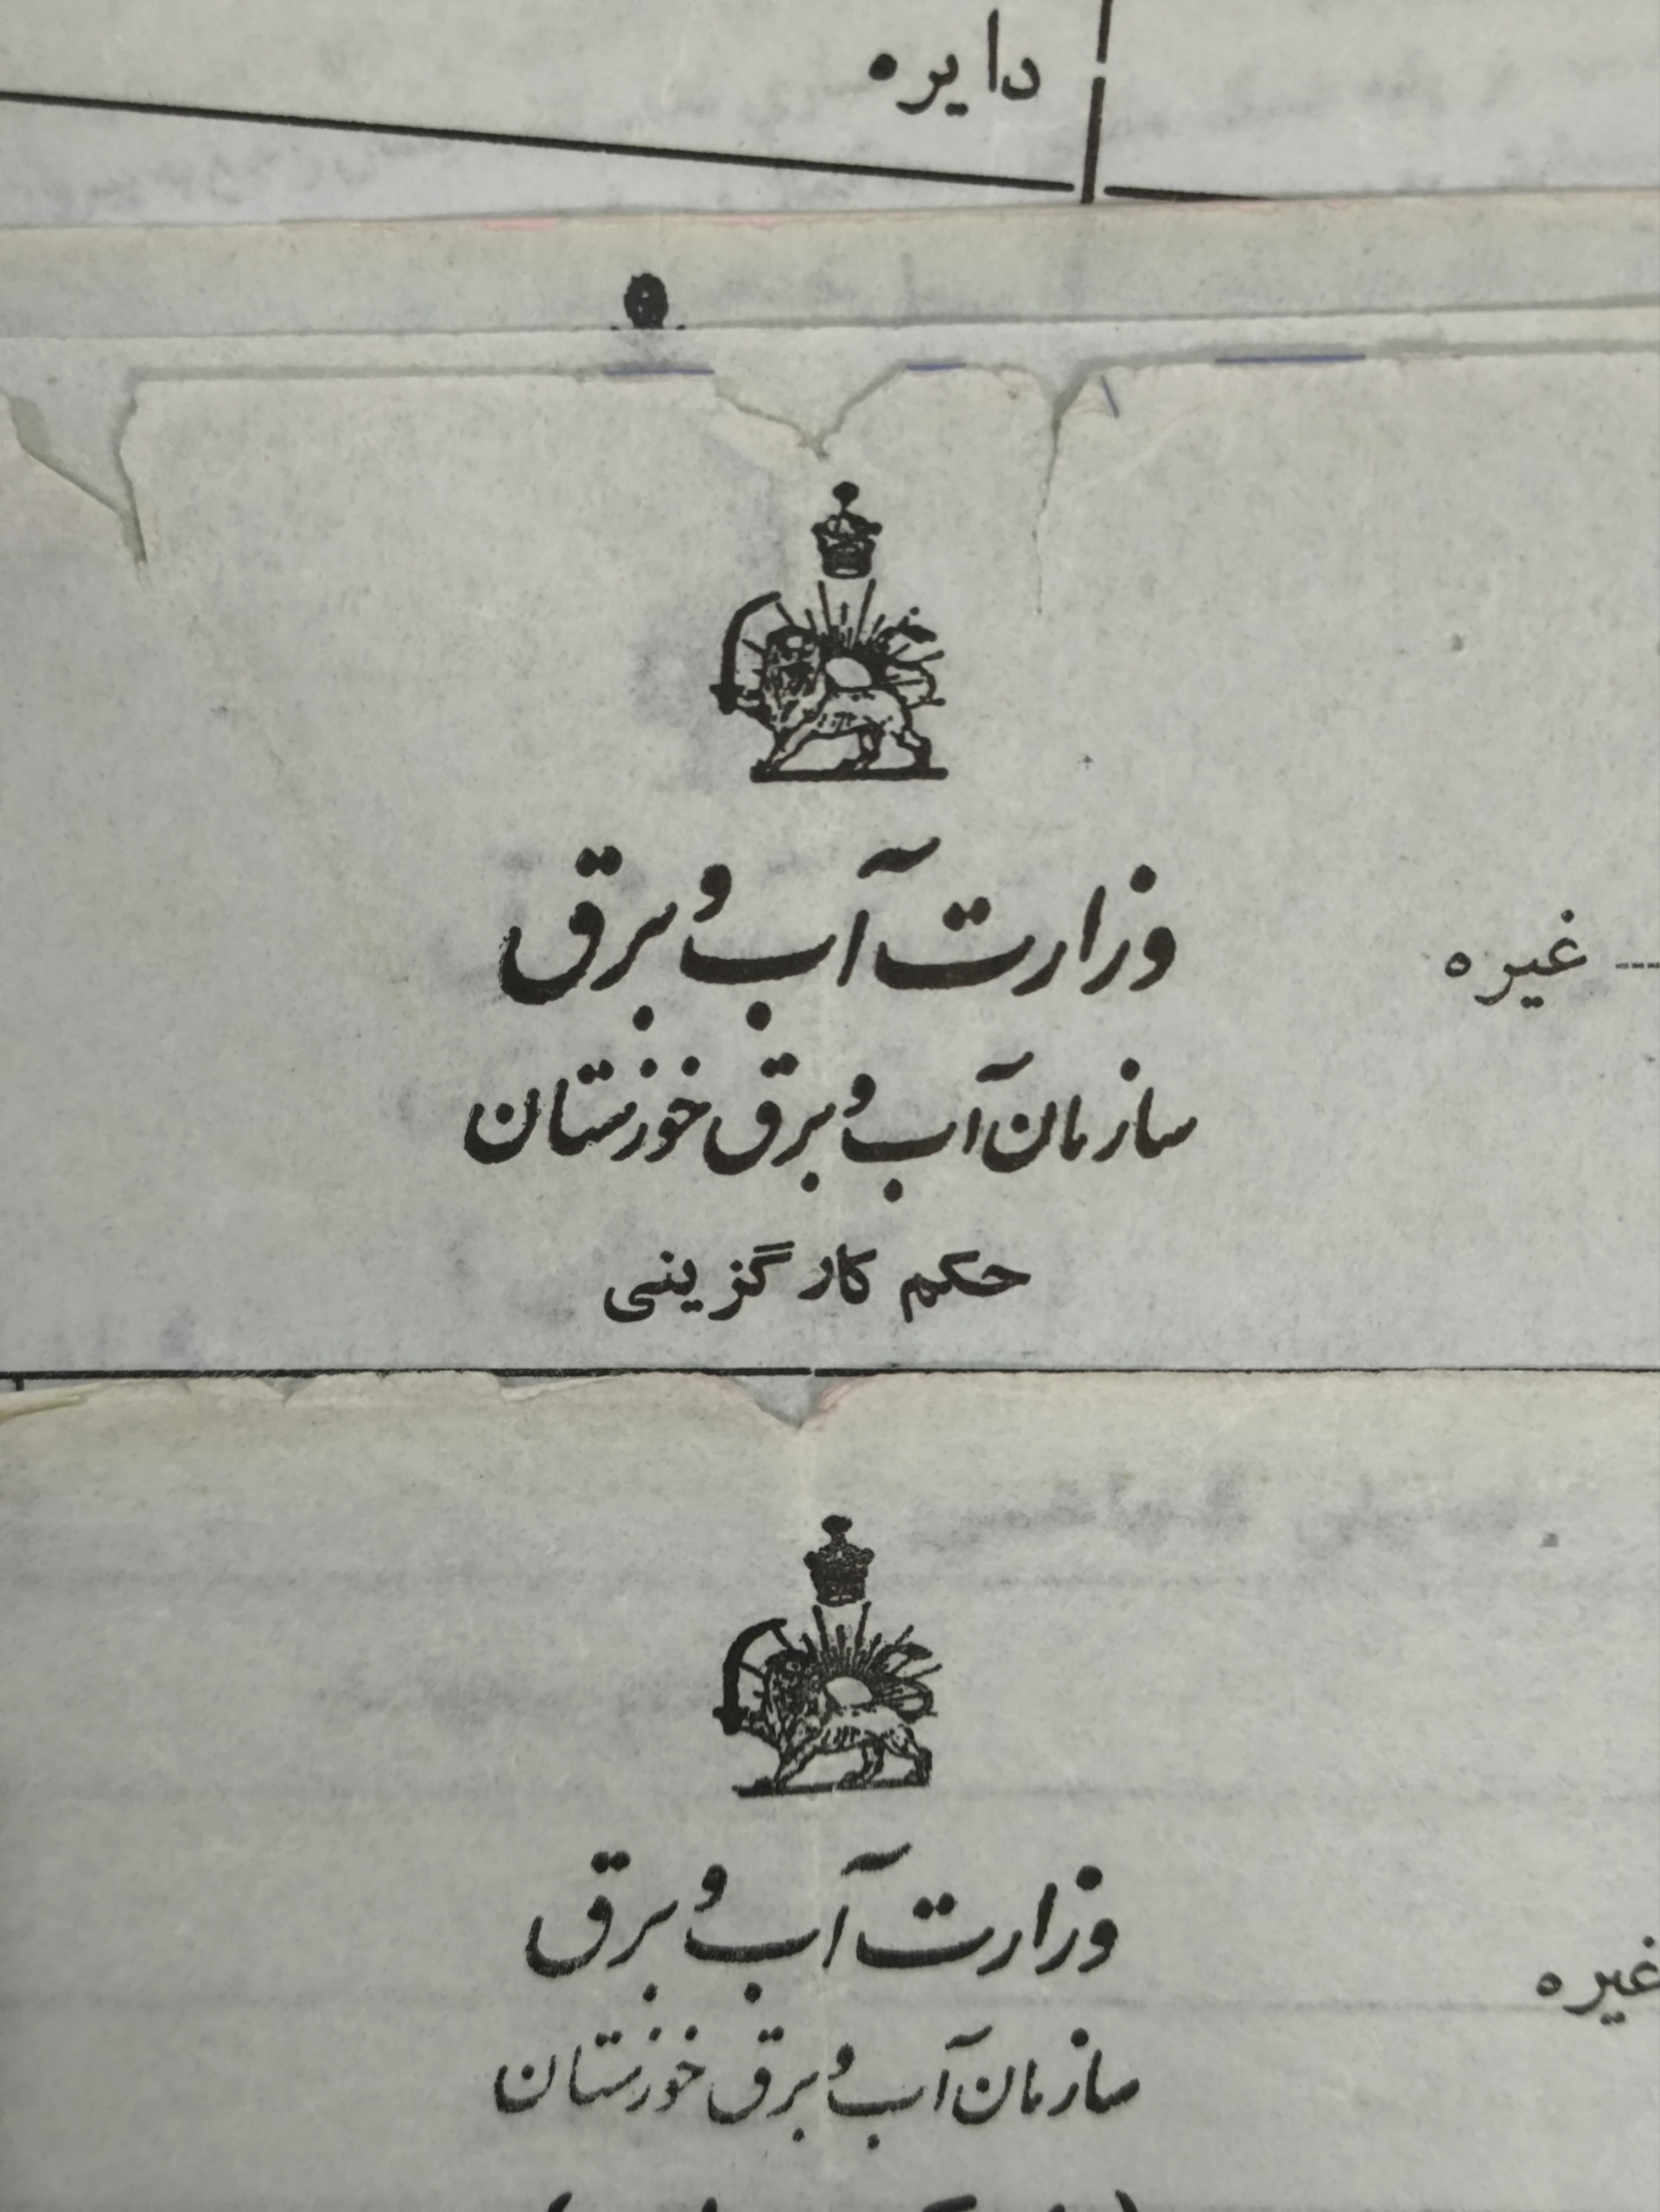 دایره
وزارت آب و برق
غیره
سازمان آب و برق خوزستان
حکم کارگزینی
وزارت آب و برق
غیره
سازمان آب و برق خوزستان